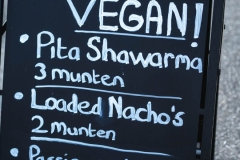 VEGAN!
• Pita Shawarma
3 munten
• Loaded Nacho's
2 munten